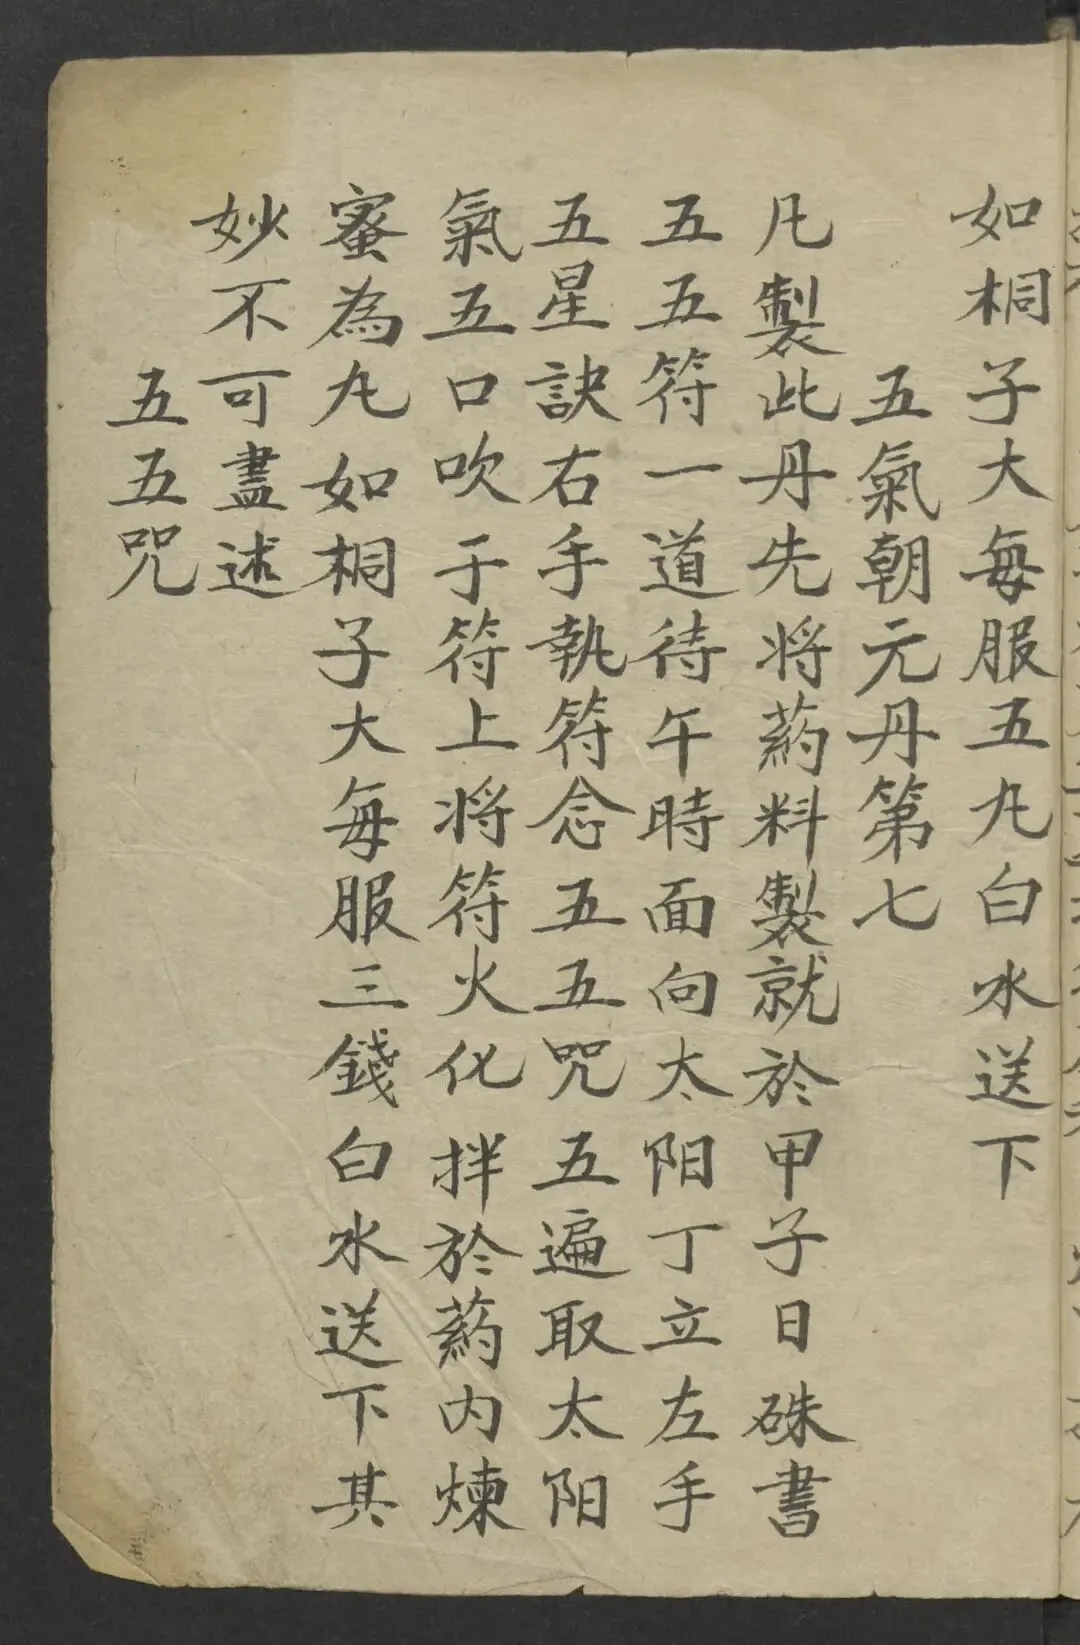 如桐子大每服五九白水送下
五氣朝元丹第七
凡製此丹先将葯料製就於甲子日硃書
五五符一道待午時面向太阳丁立左手
五星訣右手執符念五五咒五遍取太阳
氣五口吹于符上将符火化拌於葯内煉
蜜為九如桐子大每服三錢白水送下其
妙不可盡述
五五咒